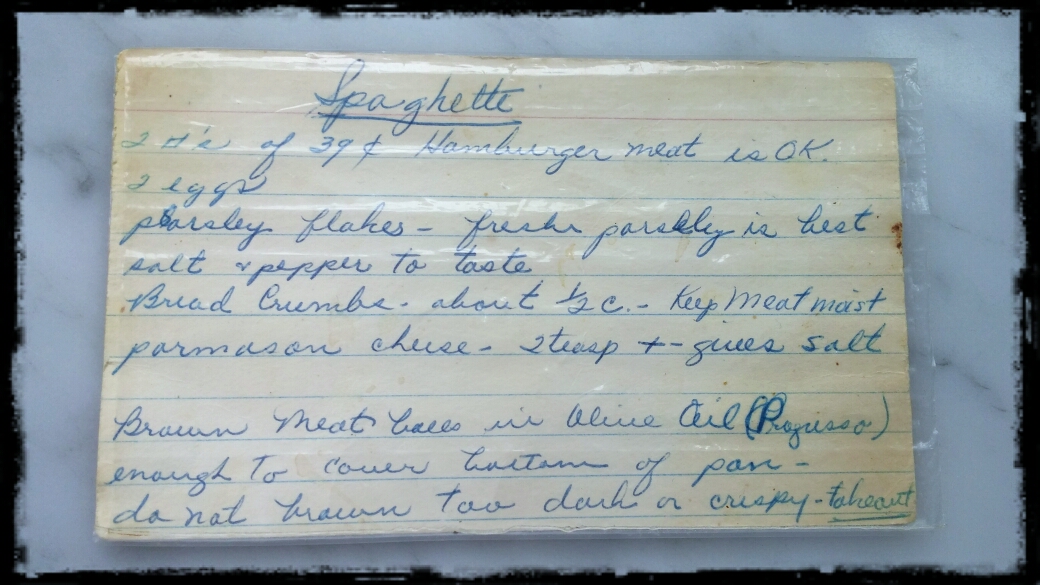 Spaghette
2 #'s of 39¢ Hamburger meat is OK.
2 eggs
parsley flakes - fresh parsley is best
salt & pepper to taste
Bread Crumbs - about ½ c. - Keep Meat moist
parmason cheese - 2 teasp + - gives salt
Brown Meat balls in Olive Oil (Progresso)
enough to cover bottom of pan -
do not brown too dark or crispy - take out